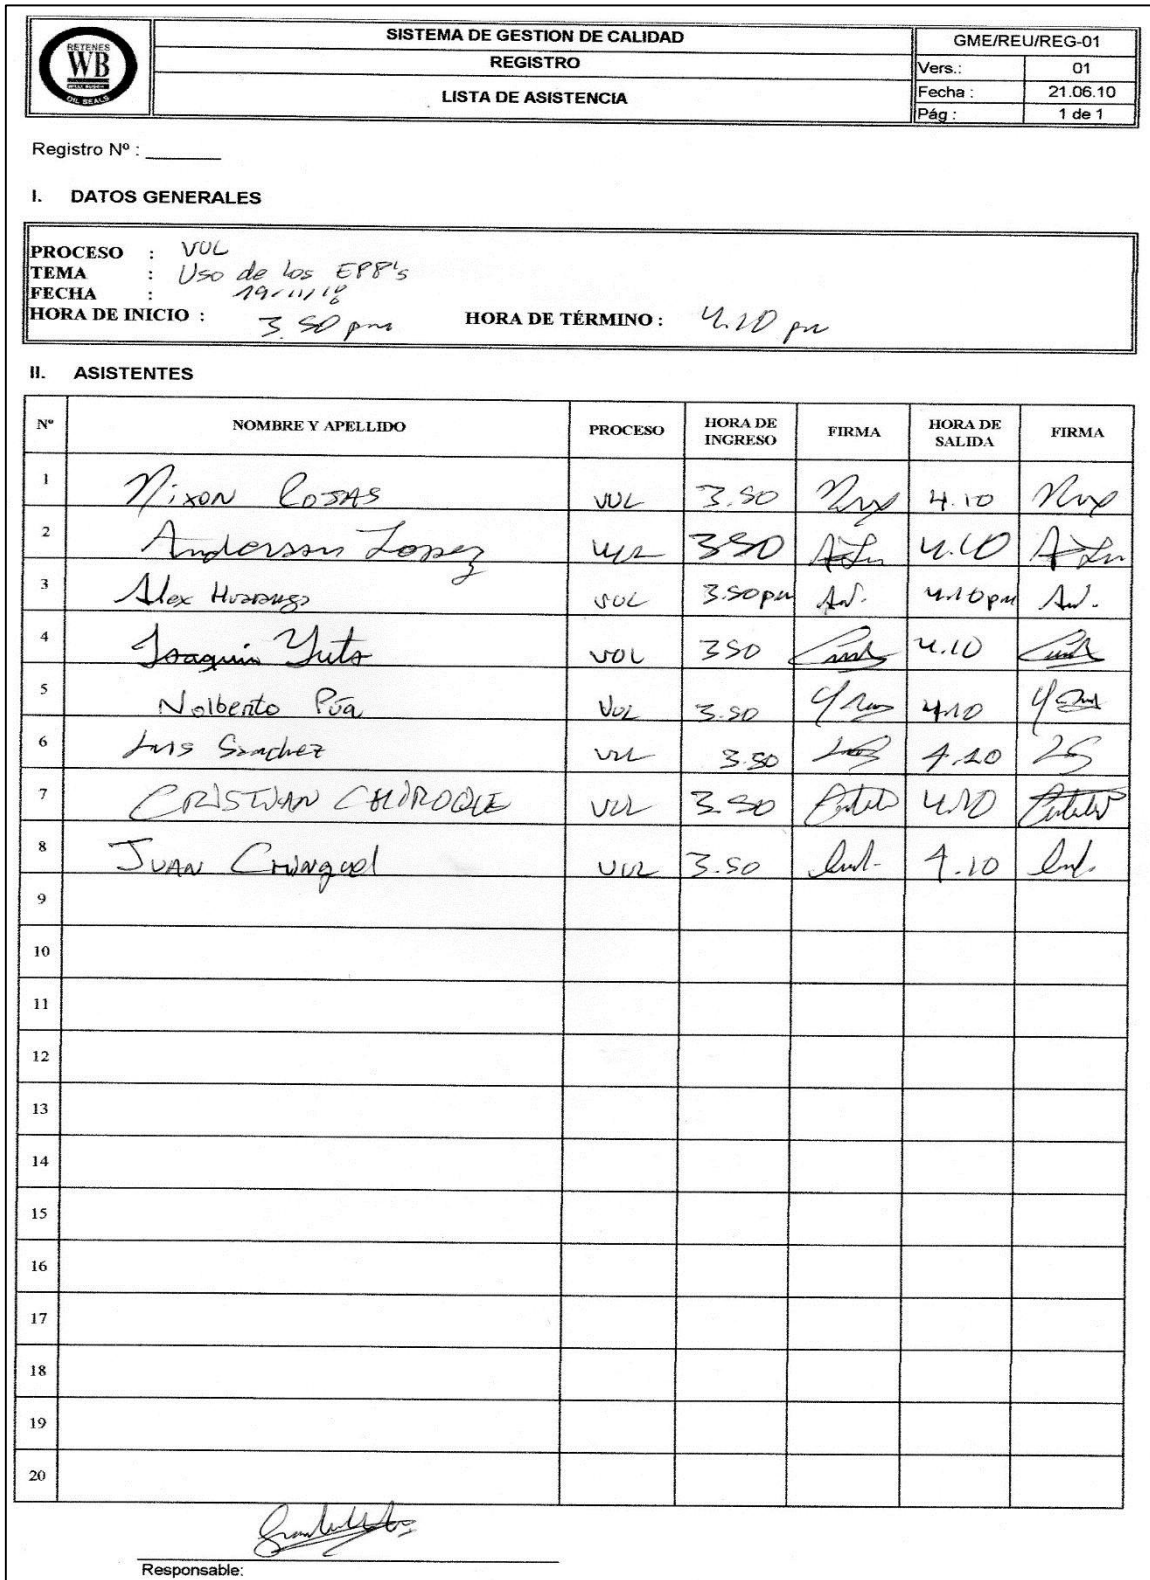 RETENES
WB
OIL SEALS
SISTEMA DE GESTION DE CALIDAD
REGISTRO
LISTA DE ASISTENCIA
GME/REU/REG-01
Vers.: 01
Fecha : 21.06.10
Pág : 1 de 1
Registro Nº :
I. DATOS GENERALES
PROCESO : VUL
TEMA : Uso de los EPP's
FECHA :
HORA DE INICIO : 3.50 pm HORA DE TÉRMINO : 4.10 pm
II. ASISTENTES
Nº NOMBRE Y APELLIDO PROCESO HORA DE INGRESO FIRMA HORA DE SALIDA FIRMA
1 Nixon Rojas VUL 3.50 4.10
2 Anderson Lopez 350 4.10
3 Alex VUL 3.50pm 4.10pm
4 Joaquin Yuto VUL 350 4.10
5 Nolberto Púa VUL 3.50 4.10
6 Luis Sanchez VUL 3.50 4.10 LS
7 CRISTHIAN CHIROQUE VUL 3.50 4.10
8 JUAN Chinguel VUL 3.50 4.10
9
10
11
12
13
14
15
16
17
18
19
20
Responsable: